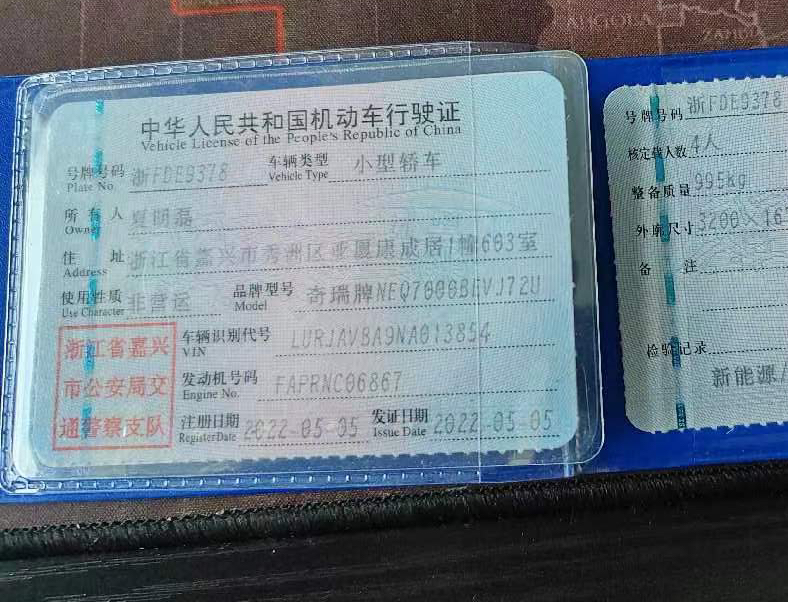 ANGOLA
中华人民共和国机动车行驶证
Vehicle License of the People's Republic of China
号牌号码 浙FDE9378 车辆类型 小型轿车
Plate No. Vehicle Type
所有人 夏明磊
Owner
住址 浙江省嘉兴市秀洲区亚厦康成居1幢603室
Address
使用性质 非营运 品牌型号 奇瑞牌NEQ7000BEVJ72U
Use Character Model
浙江省嘉兴
市公安局交
通警察支队
车辆识别代号 LURJAVBA9NA013854
VIN
发动机号码 FAPRNC06867
Engine No.
注册日期 2022-05-05 发证日期 2022-05-05
Register Date Issue Date
号牌号码 浙FDE9378
核定载人数 4人
整备质量 995kg
外廓尺寸 3200×16
备注
检验记录
新能源/